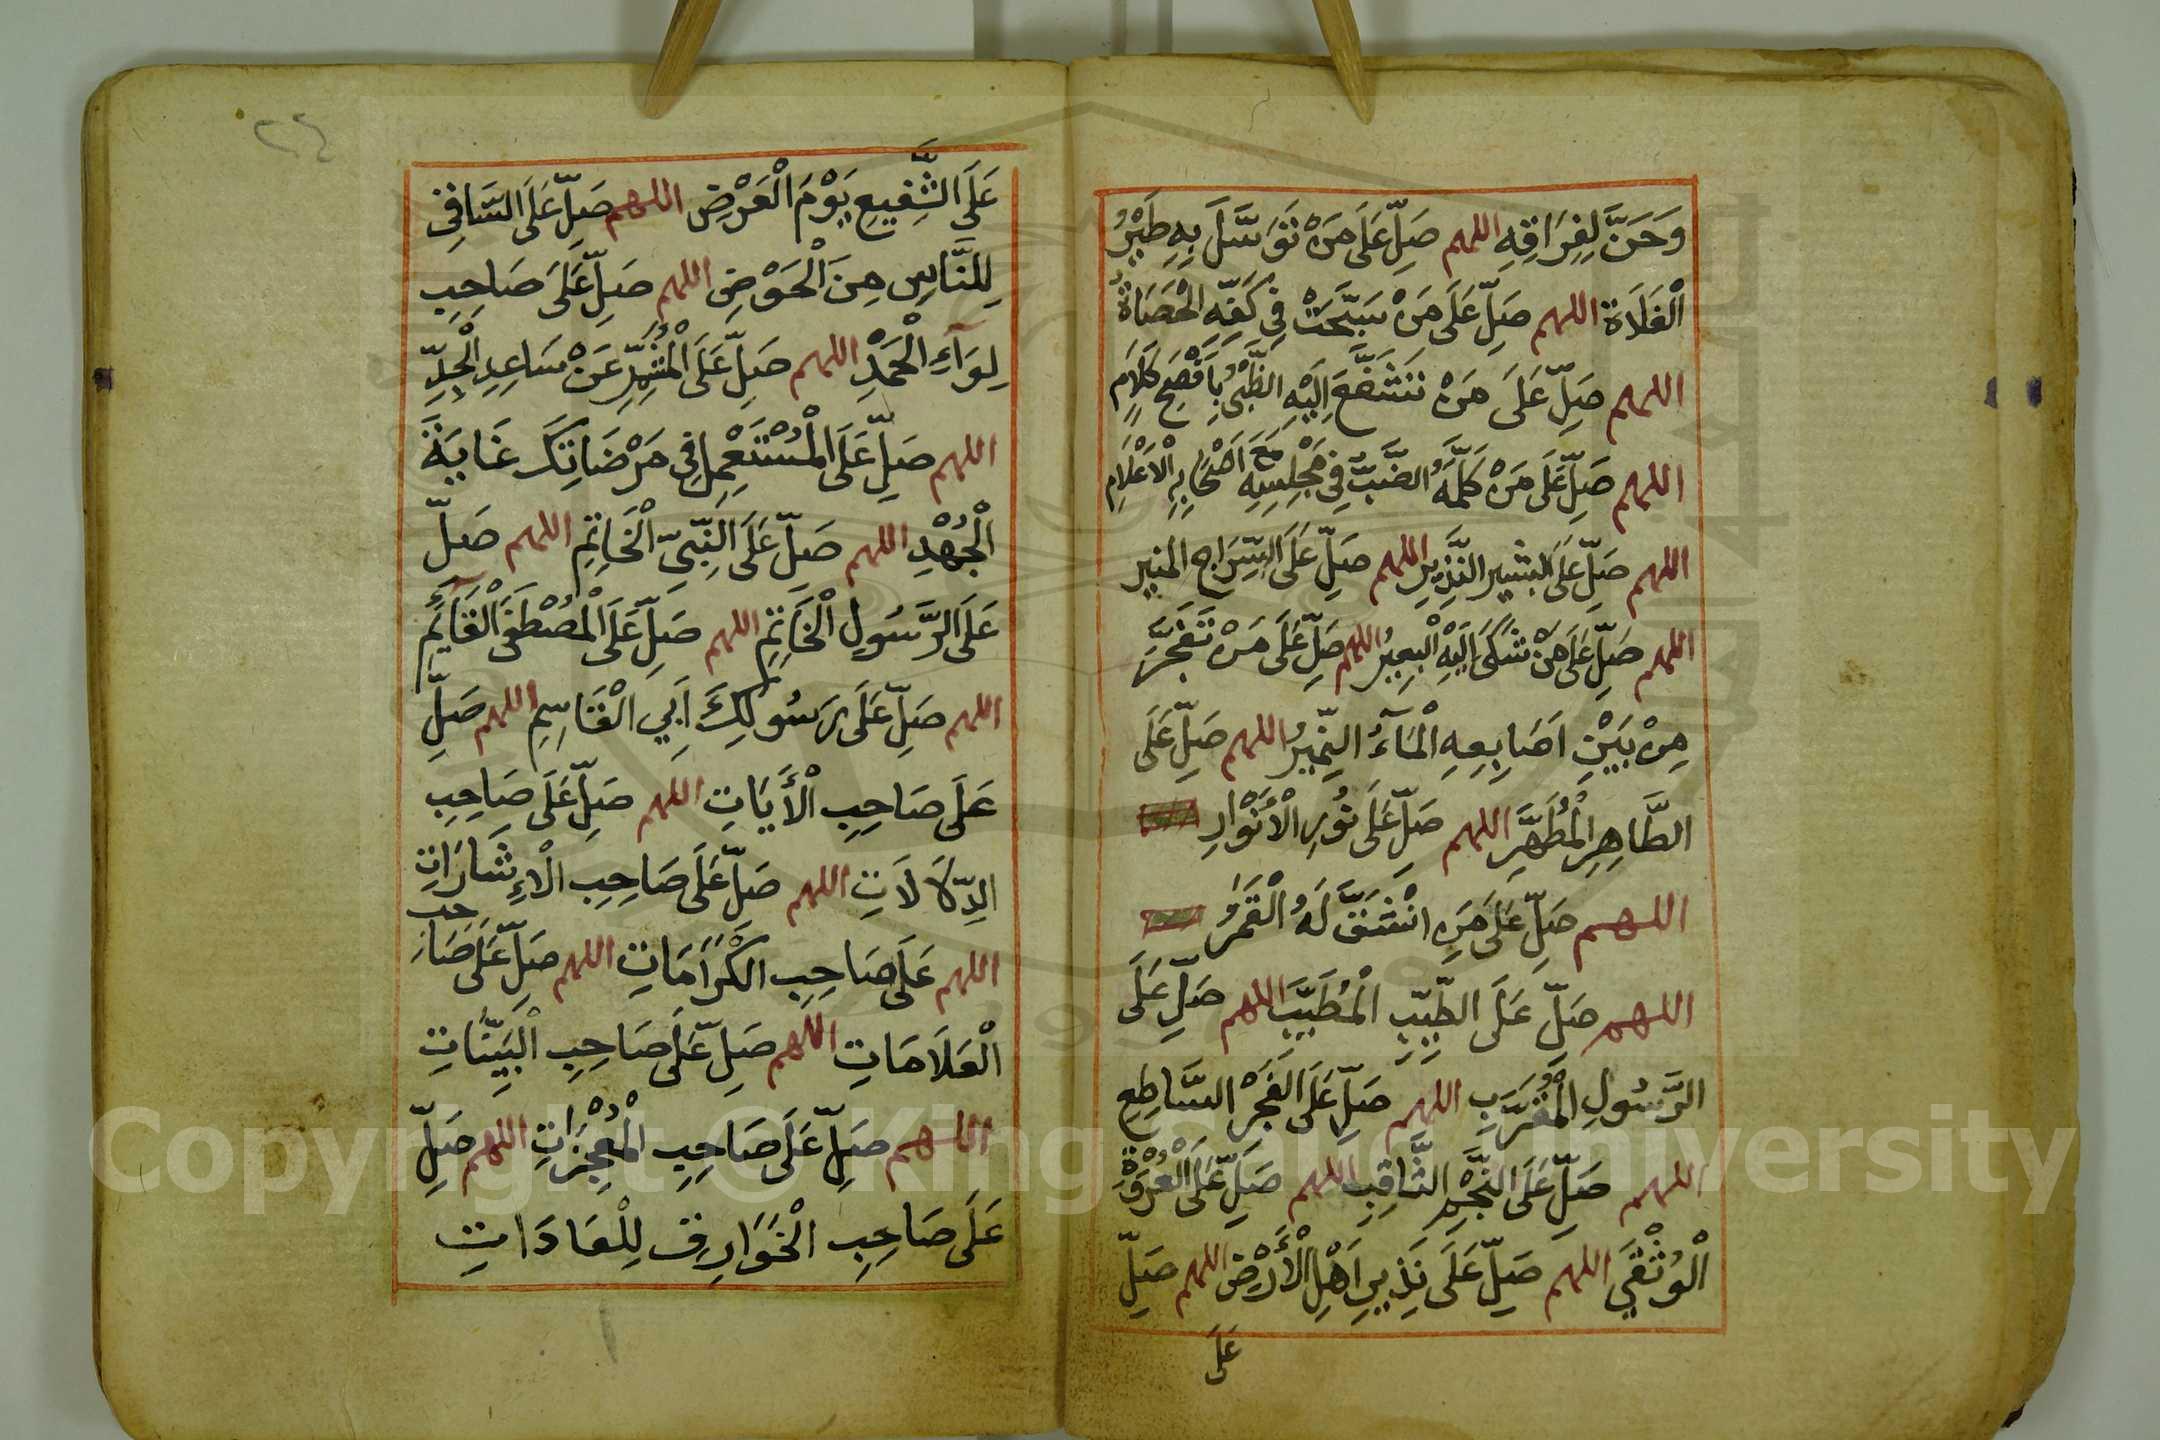 وَحَنَّ لِفِرَاقِهِ اللهم صَلِّ عَلَى مَنْ تَوَسَّلَ بِهِ طَيْرُ
الْفَلَاةِ اللهم صَلِّ عَلَى مَنْ سَبَّحَتْ فِي كَفِّهِ الْحَصَاةُ
اللهم صَلِّ عَلَى مَنْ تَشَفَّعَ اِلَيْهِ الظَّبْيُ بِاَفْصَحِ كَلَامٍ
اللهم صَلِّ عَلَى مَنْ كَلَّمَهُ الضَّبُّ فِي مَجْلِسِهِ مَعَ اَصْحَابِهِ الْاَعْلَامِ
اللهم صَلِّ عَلَى البشير النَّذِيرِ اللهم صَلِّ عَلَى السِّرَاجِ المنير
اللهم صَلِّ عَلَى مَنْ شَكَى اِلَيْهِ الْبَعِيرُ اللهم صَلِّ عَلَى مَنْ تَفَجَّرَ
مِنْ بَيْنِ اَصَابِعِهِ الْمَآءُ النَّمِيرُ اللهم صَلِّ عَلَى
الطَّاهِرِ الْمُطَهَّرِ اللهم صَلِّ عَلَى نُورِ الْأَنْوَارِ
اللهم صَلِّ عَلَى مَنِ انْشَقَّ لَهُ الْقَمَرُ
اللهم صَلِّ عَلَى الطَّيِّبِ الْمُطَيَّبِ اللهم صَلِّ عَلَى
الرَّسُولِ الْمُقَرَّبِ اللهم صَلِّ عَلَى الفَجْرِ السَّاطِعِ
اللهم صَلِّ عَلَى النَّجْمِ الثَّاقِبِ اللهم صَلِّ عَلَى الْعُرْوَةِ
الْوُثْقَي اللهم صَلِّ عَلَى نَذِيرِ اَهْلِ الْأَرْضِ اللهم صَلِّ
عَلَى
٢٤
عَلَى الشَّفِيعِ يَوْمَ الْعَرْضِ اللهم صَلِّ عَلَى السَّاقِي
لِلنَّاسِ مِنَ الْحَوْضِ اللهم صَلِّ عَلَى صَاحِبِ
لِوَآءِ الْحَمْدِ اللهم صَلِّ عَلَى الْمُشَمِّرِ عَنْ سَاعِدِ الْجِدِّ
اللهم صَلِّ عَلَى الْمُسْتَعْمِلِ فِي مَرْضَاتِكَ غَايَةَ
الْجُهْدِ اللهم صَلِّ عَلَى النَّبِيِّ الْخَاتِمِ اللهم صَلِّ
عَلَى الرَّسُولِ الْخَاتِمِ اللهم صَلِّ عَلَى الْمُصْطَفَى الْقَآئِمِ
اللهم صَلِّ عَلَى رَسُولِكَ اَبِي الْقَاسِمِ اللهم صَلِّ
عَلَى صَاحِبِ الْأَيَاتِ اللهم صَلِّ عَلَى صَاحِبِ
الدِّلَالَاتِ اللهم صَلِّ عَلَى صَاحِبِ الْاِشَارَاتِ
اللهم عَلَى صَاحِبِ الْكَرَامَاتِ اللهم صَلِّ عَلَى صَاحِبِ
الْعَلَامَاتِ اللهم صَلِّ عَلَى صَاحِبِ الْبَيِّنَاتِ
اللهم صَلِّ عَلَى صَاحِبِ الْمُعْجِزَاتِ اللهم صَلِّ
عَلَى صَاحِبِ الْخَوَارِقِ لِلْعَادَاتِ
Copyright © King Saud University